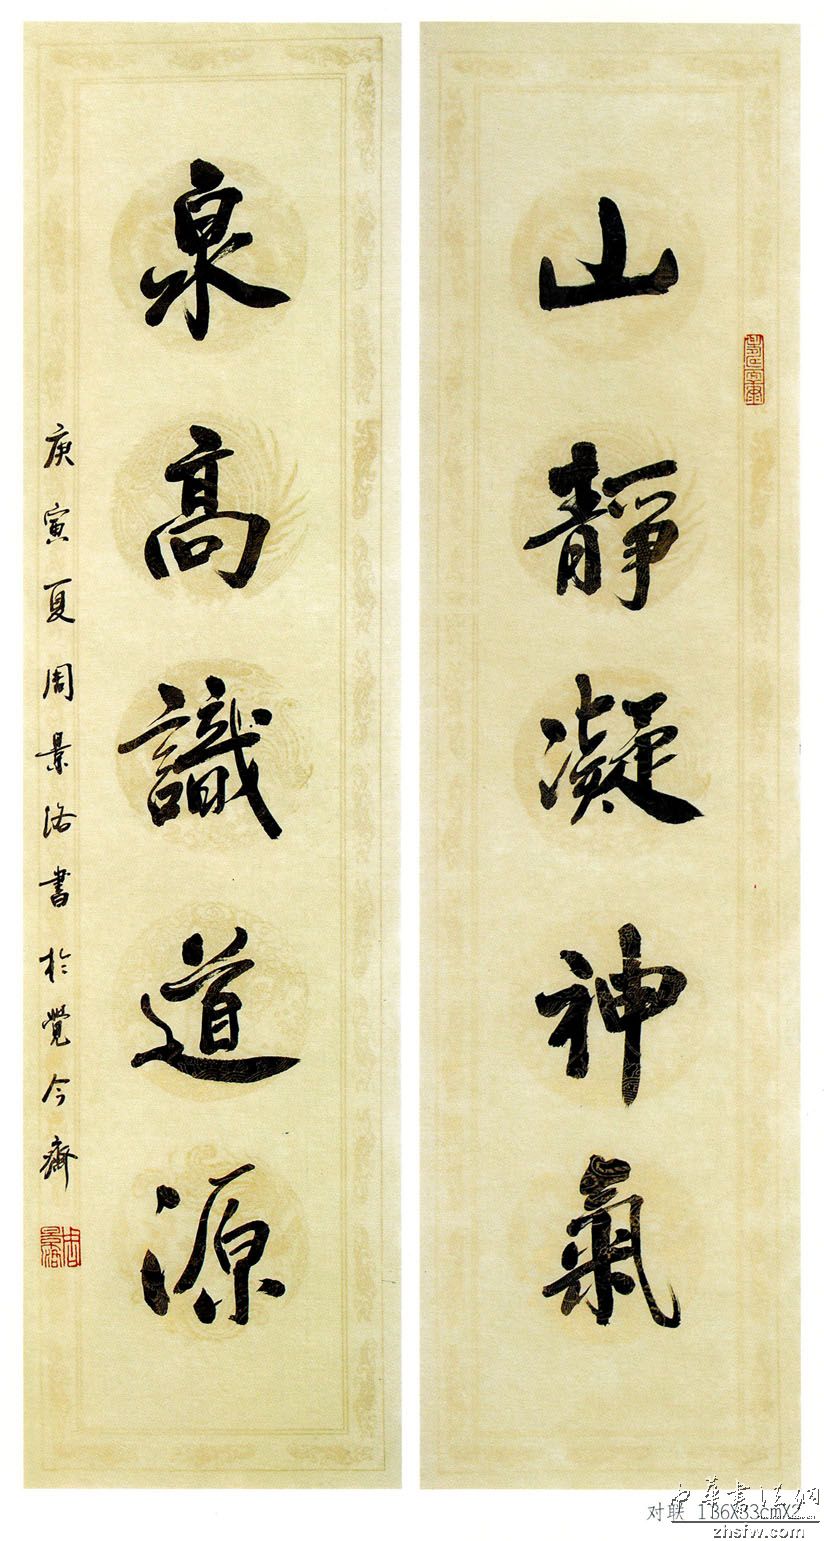 山靜凝神氣
泉高識道源
庚寅夏周景洛書於覺今齋
对联 136X33cmX2
中华书法网
zhsfw.com